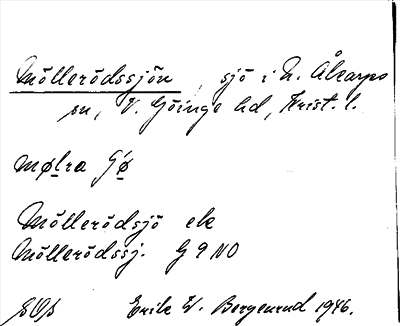 Möllerödssjön, sjö i N. Åkarps
sn, V. Göinge hd, Krist. l.
mølra Sø
Möllerödsjö ek
Möllerödssj. G 9 NO
Erik W. Bergenrud 1946.